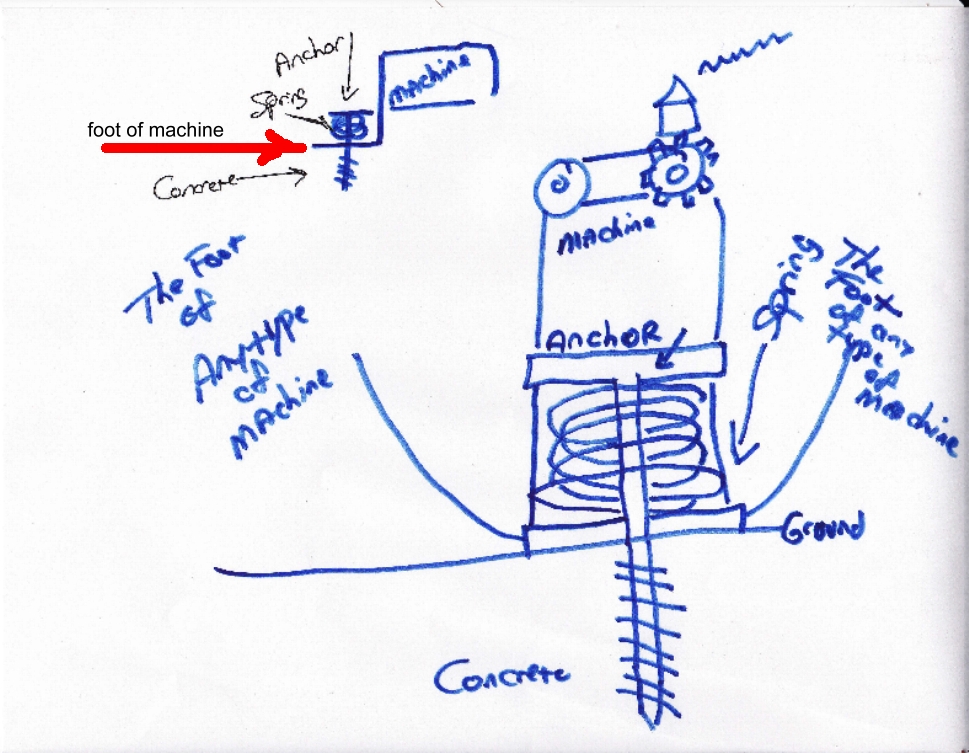 Anchor
Spring
MAchine
foot of machine
Concrete
MAchine
The Foot
of
Any type
of
MAchine
AnchoR
Spring
The
Foot
of any
type
of
MAchine
Ground
Concrete